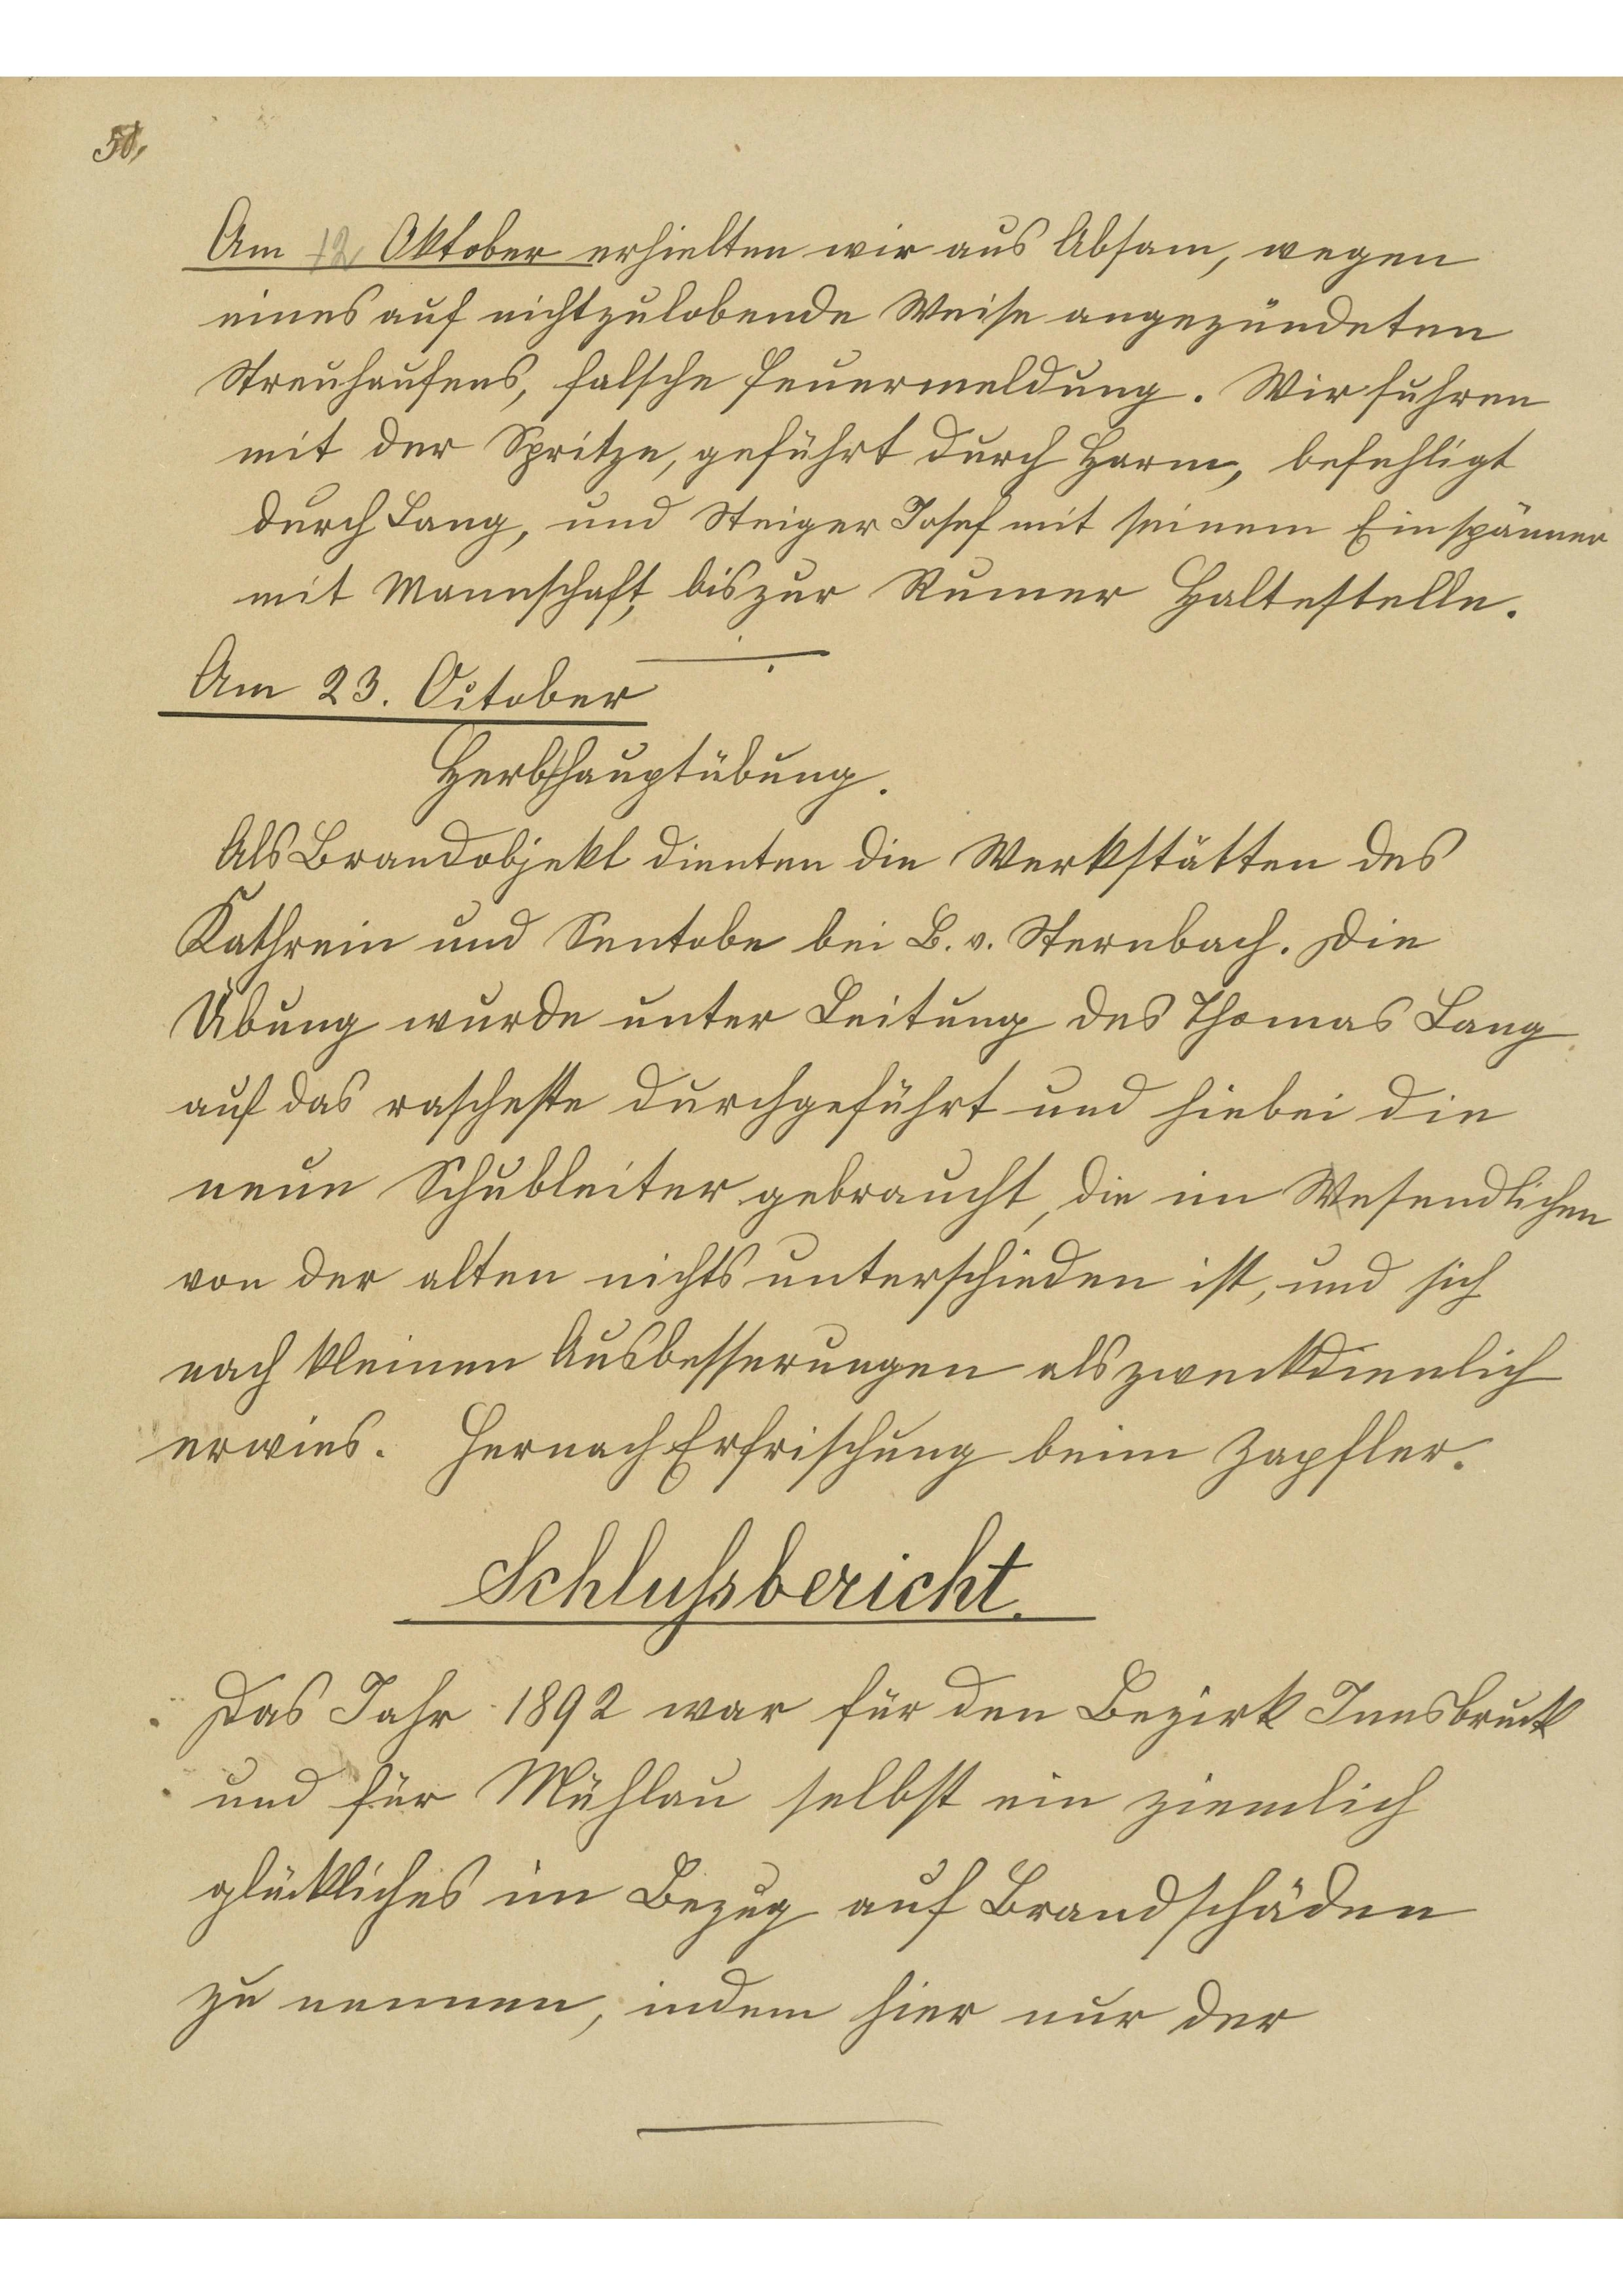 Am 12 Oktober erhielten wir aus Absam, wegen
eines auf nichtzulobende Weise angezündeten
Streuhaufens, falsche Feuermeldung. Wir fuhren
mit der Spritze, geführt durch Harm, befehligt
durch Lang, und Steiger Josef mit seinem Einspänner
mit Mannschaft, bis zur Rumer Haltestelle.
Am 23. October
Herbsthauptübung.
Als Brandobjekt dienten die Werkstätten des
Kathrein und Sentobe bei B. v. Sternbach. Die
Übung wurde unter Leitung des Thomas Lang
auf das rascheste durchgeführt und hiebei die
neue Schubleiter gebraucht, die im Wesendlichen
von der alten nichts unterschieden ist, und sich
nach kleinen Ausbesserungen als zweckdienlich
erwies. Hernach Erfrischung beim Zapfler.
Schlußsbericht.
Das Jahr 1892 war für den Bezirk Innsbruck
und für Mühlau selbst ein ziemlich
glückliches im Bezug auf Brandschäden
zu nennen, indem hier nur der